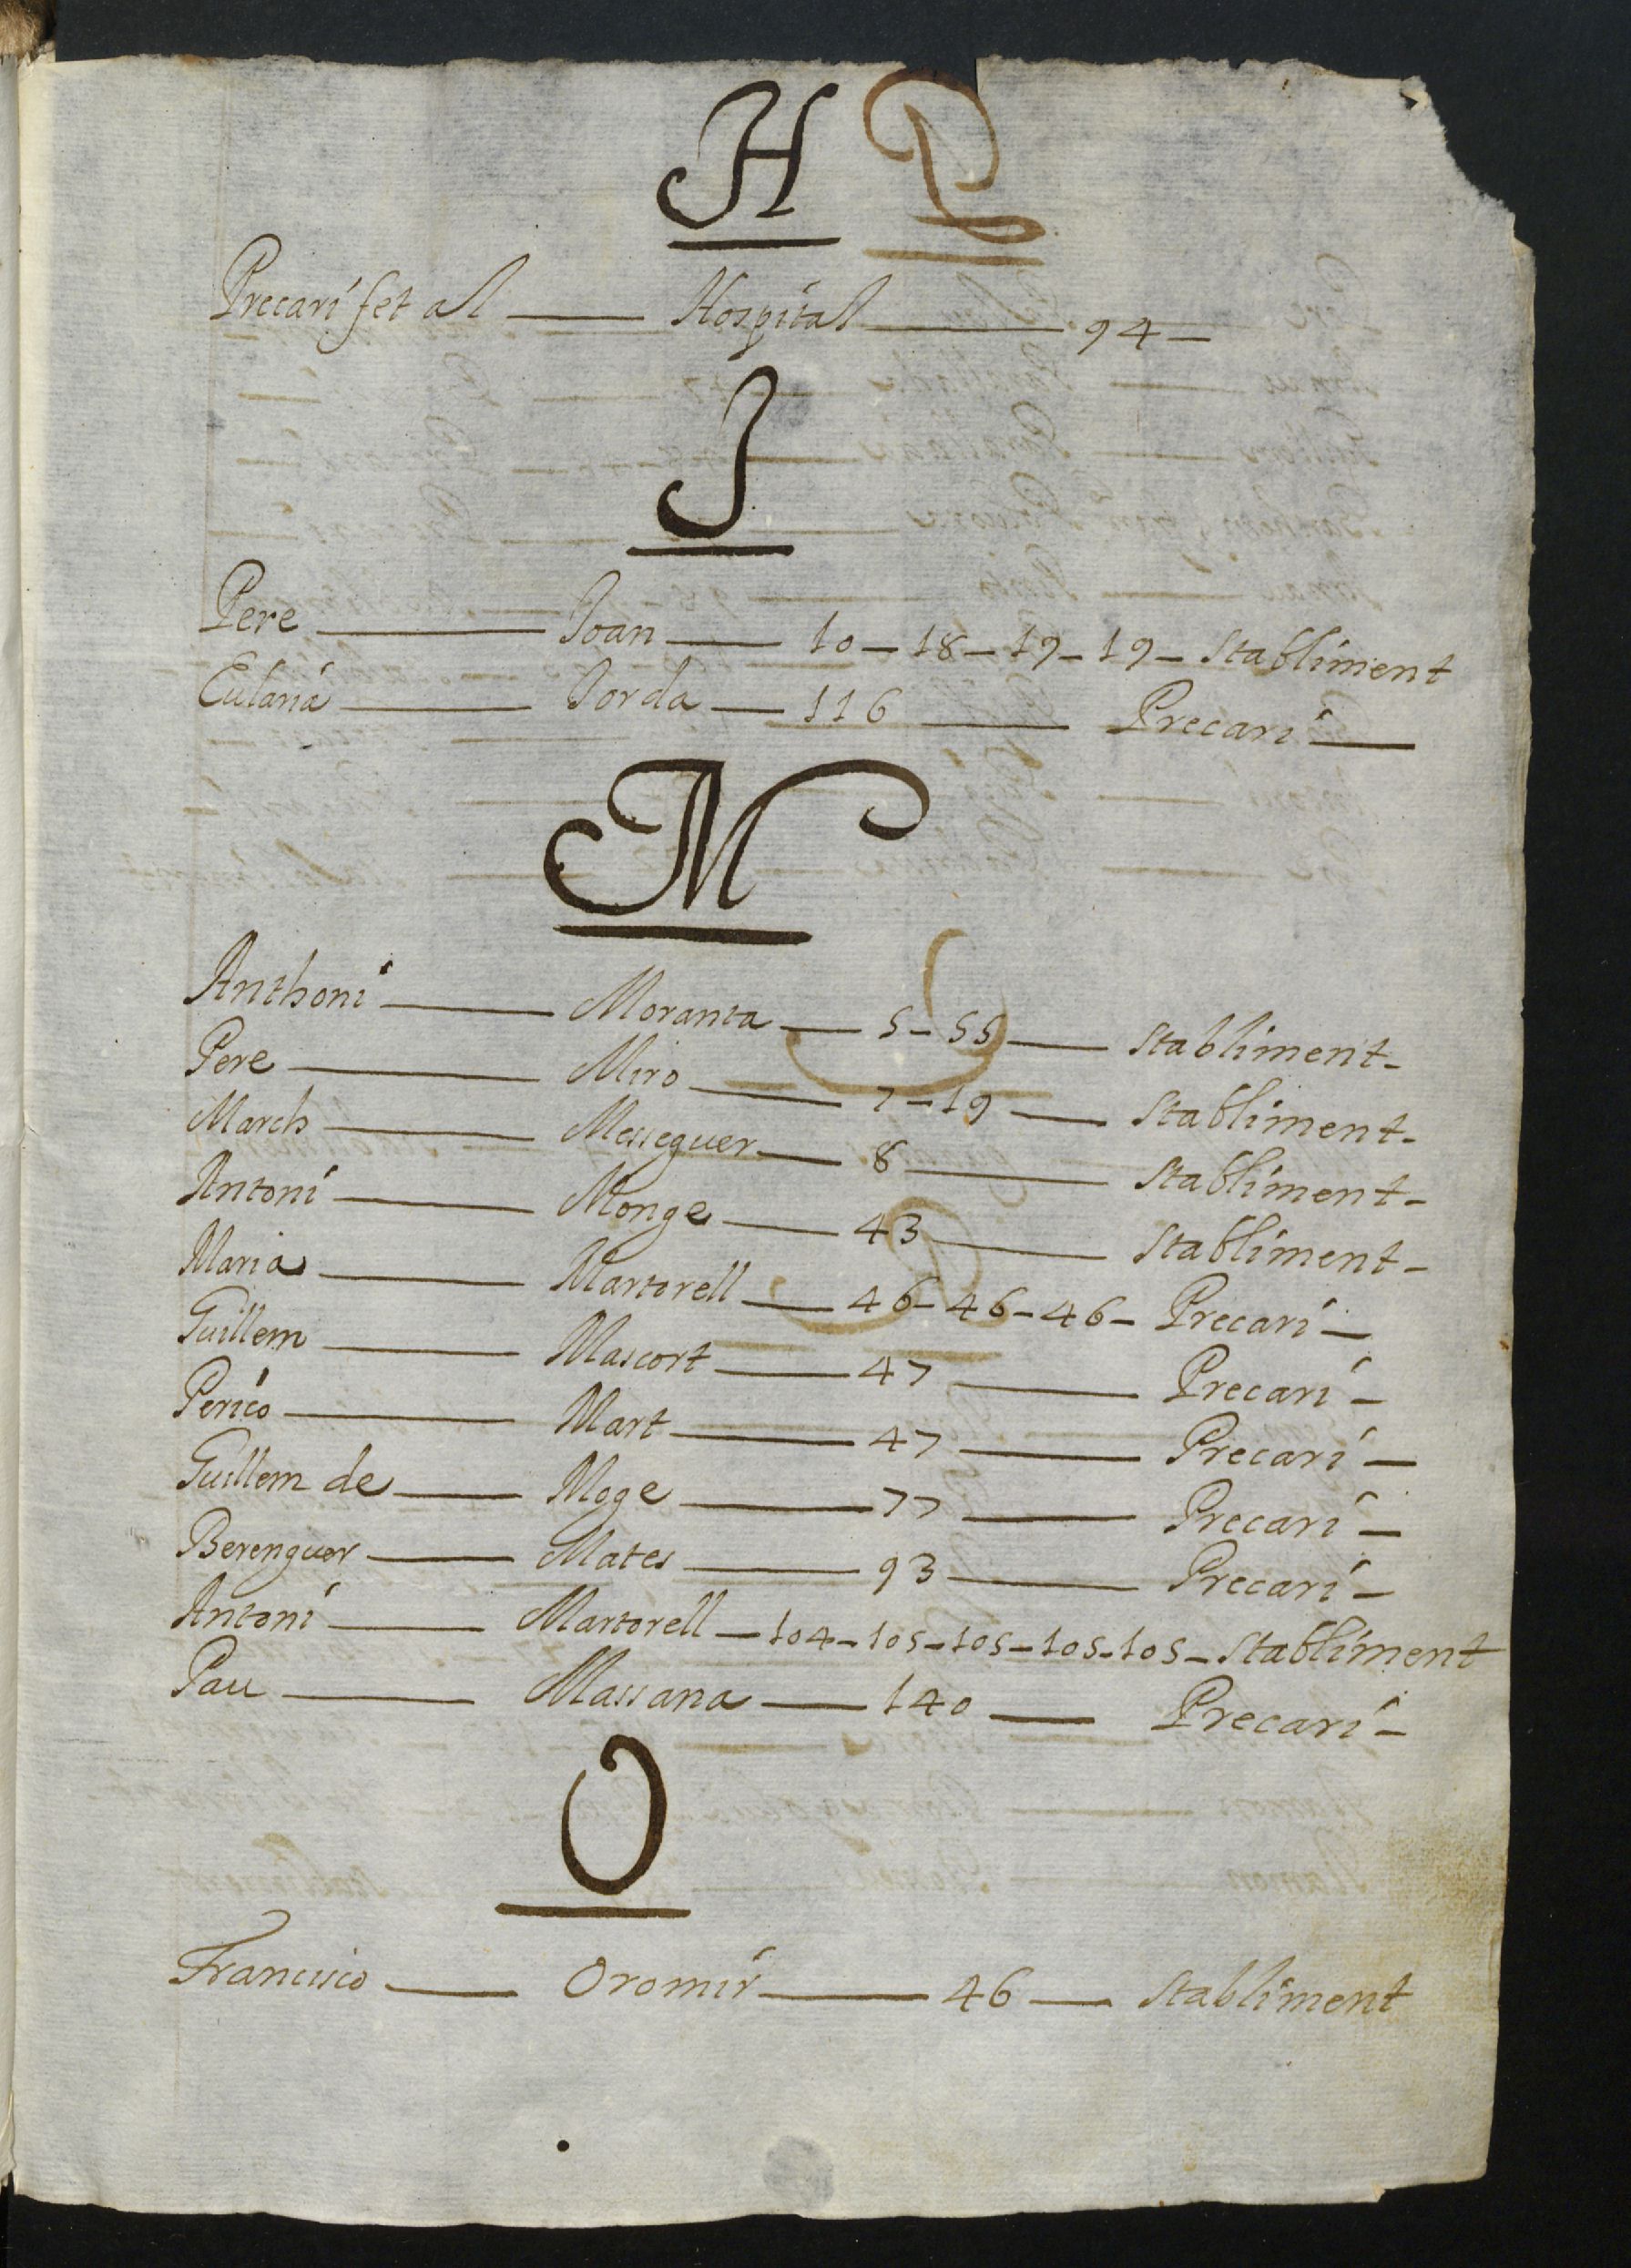 H
Precari fet al — Hospital — 94 —
J
Pere — Joan — 10 — 18 — 19 — 19 — Stabliment
Eularia — Jorda — 116 — Precari —
M
Anthoni — Moranta — 5 — 55 — Stabliment —
Pere — Miro — 7 — 19 — Stabliment —
March — Messeguer — 8 — Stabliment —
Antoni — Monge — 43 — Stabliment —
Maria — Martorell — 46 — 46 — 46 — Precari —
Guillem — Mascort — 47 — Precari —
Perico — Mart — 47 — Precari —
Guillem de — Moge — 77 — Precari —
Berenguer — Mates — 93 — Precari —
Antoni — Martorell — 104 — 105 — 105 — 105 — 105 — Stabliment
Pau — Massana — 140 — Precari —
O
Francisco — Oromir — 46 — Stabliment